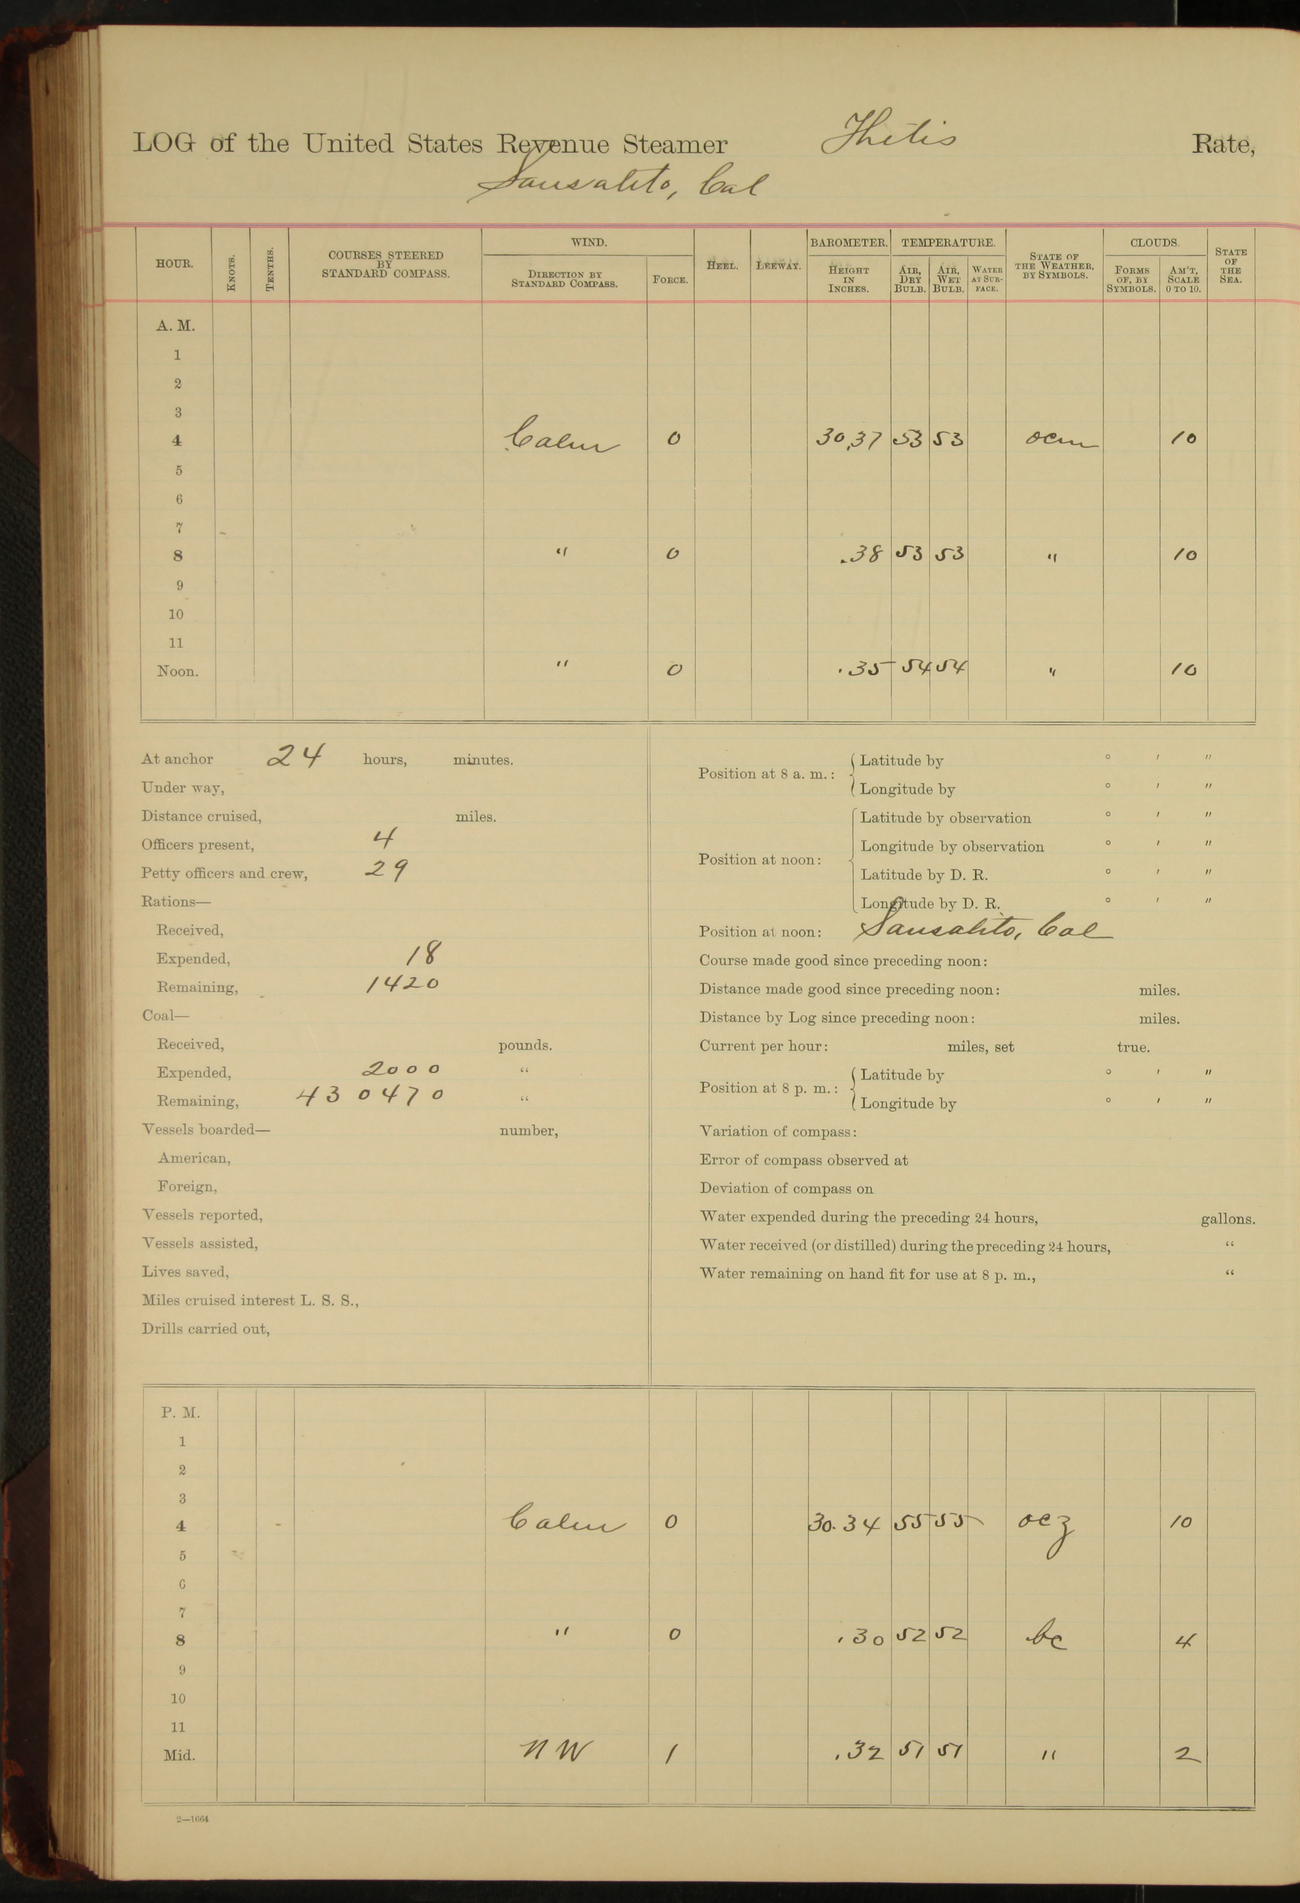 LOG of the United States Revenue Steamer Thetis Rate,
Sausalito, Cal
HOUR. KNOTS. TENTHS. COURSES STEERED BY STANDARD COMPASS. WIND. DIRECTION BY STANDARD COMPASS. FORCE. HEEL. LEEWAY. BAROMETER. HEIGHT IN INCHES. TEMPERATURE. AIR, DRY BULB. AIR, WET BULB. WATER AT SURFACE. STATE OF THE WEATHER, BY SYMBOLS. CLOUDS. FORMS OF, BY SYMBOLS. AM'T, SCALE 0 TO 10. STATE OF THE SEA.
A. M.
1
2
3
4 Calm 0 30,37 53 53 ocm 10
5
6
7
8 " 0 .38 53 53 " 10
9
10
11
Noon. " 0 .35 54 54 " 10
At anchor 24 hours, minutes.
Under way,
Distance cruised, miles.
Officers present, 4
Petty officers and crew, 29
Rations—
Received,
Expended, 18
Remaining, 1420
Coal—
Received, pounds.
Expended, 2000 "
Remaining, 430470 "
Vessels boarded— number,
American,
Foreign,
Vessels reported,
Vessels assisted,
Lives saved,
Miles cruised interest L. S. S.,
Drills carried out,
Position at 8 a. m.: Latitude by ° ′ ″
Longitude by ° ′ ″
Position at noon: Latitude by observation ° ′ ″
Longitude by observation ° ′ ″
Latitude by D. R. ° ′ ″
Longitude by D. R. ° ′ ″
Position at noon: Sausalito, Cal
Course made good since preceding noon:
Distance made good since preceding noon: miles.
Distance by Log since preceding noon: miles.
Current per hour: miles, set true.
Position at 8 p. m.: Latitude by ° ′ ″
Longitude by ° ′ ″
Variation of compass:
Error of compass observed at
Deviation of compass on
Water expended during the preceding 24 hours, gallons.
Water received (or distilled) during the preceding 24 hours, "
Water remaining on hand fit for use at 8 p. m., "
P. M.
1
2
3
4 Calm 0 30.34 55 55 ocz 10
5
6
7
8 " 0 .30 52 52 bc 4
9
10
11
Mid. NW 1 .32 51 51 " 2
2—1664